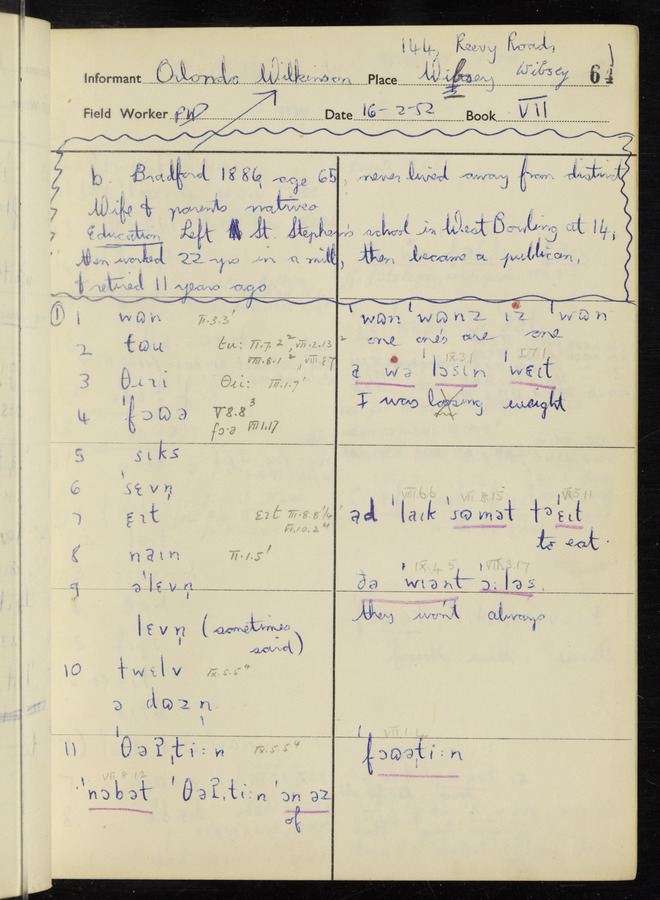 144, Reevy Road,
Informant Orlando Wilkinson Place Wibsey Wibsey 64
Field Worker PW Date 16-2-52 Book VII
b. Bradford 1886, age 65, never lived away from district
Wife & parents natives
Education Left St. Stephen's school in West Bowling at 14,
then worked 22 yrs in a mill, then became a publican,
& retired 11 years ago
① 1 wɷn II.3.3'
2 tɷu tu: II.7.2², VII.2.13²
VIII.8.1², VIII.8.7
3 θɩri θɩi: III.1.7'
4 'fɔɷə V.8.8³
fɔ·ə VII.1.17
5 sɩks
6 'sɛvn̩
7 ɛɩt ɛɩt III.8.8'/4'
VI.10.2"
8 naɩn II.1.5'
9 ə'lɛvn̩
lɛvn̩ (sometimes
said)
10 twɛlv IX.5.5"
ə dɷzn̩
11 'θəʔˌti:n IX.5.5"
VII.8.12
'nɔbət 'θəʔˌti:n 'ɔn əz
of
'wɷn 'wɷnz ɩz 'wɷn
one one's are one
IX.3.1 I.7.1
ə wə 'lɔsɩn 'wɛɩt
I was loosing weight
VIII.6.6 VII.8.15 VI.5.11
əd 'laɩk 'sɷmət tə'ɛɩt
to eat.
IX.4.5 VII.3.17
ðə 'wɩənt 'ɔ:ləs
they won't always
VII.1.
'fɔɷəˌti:n